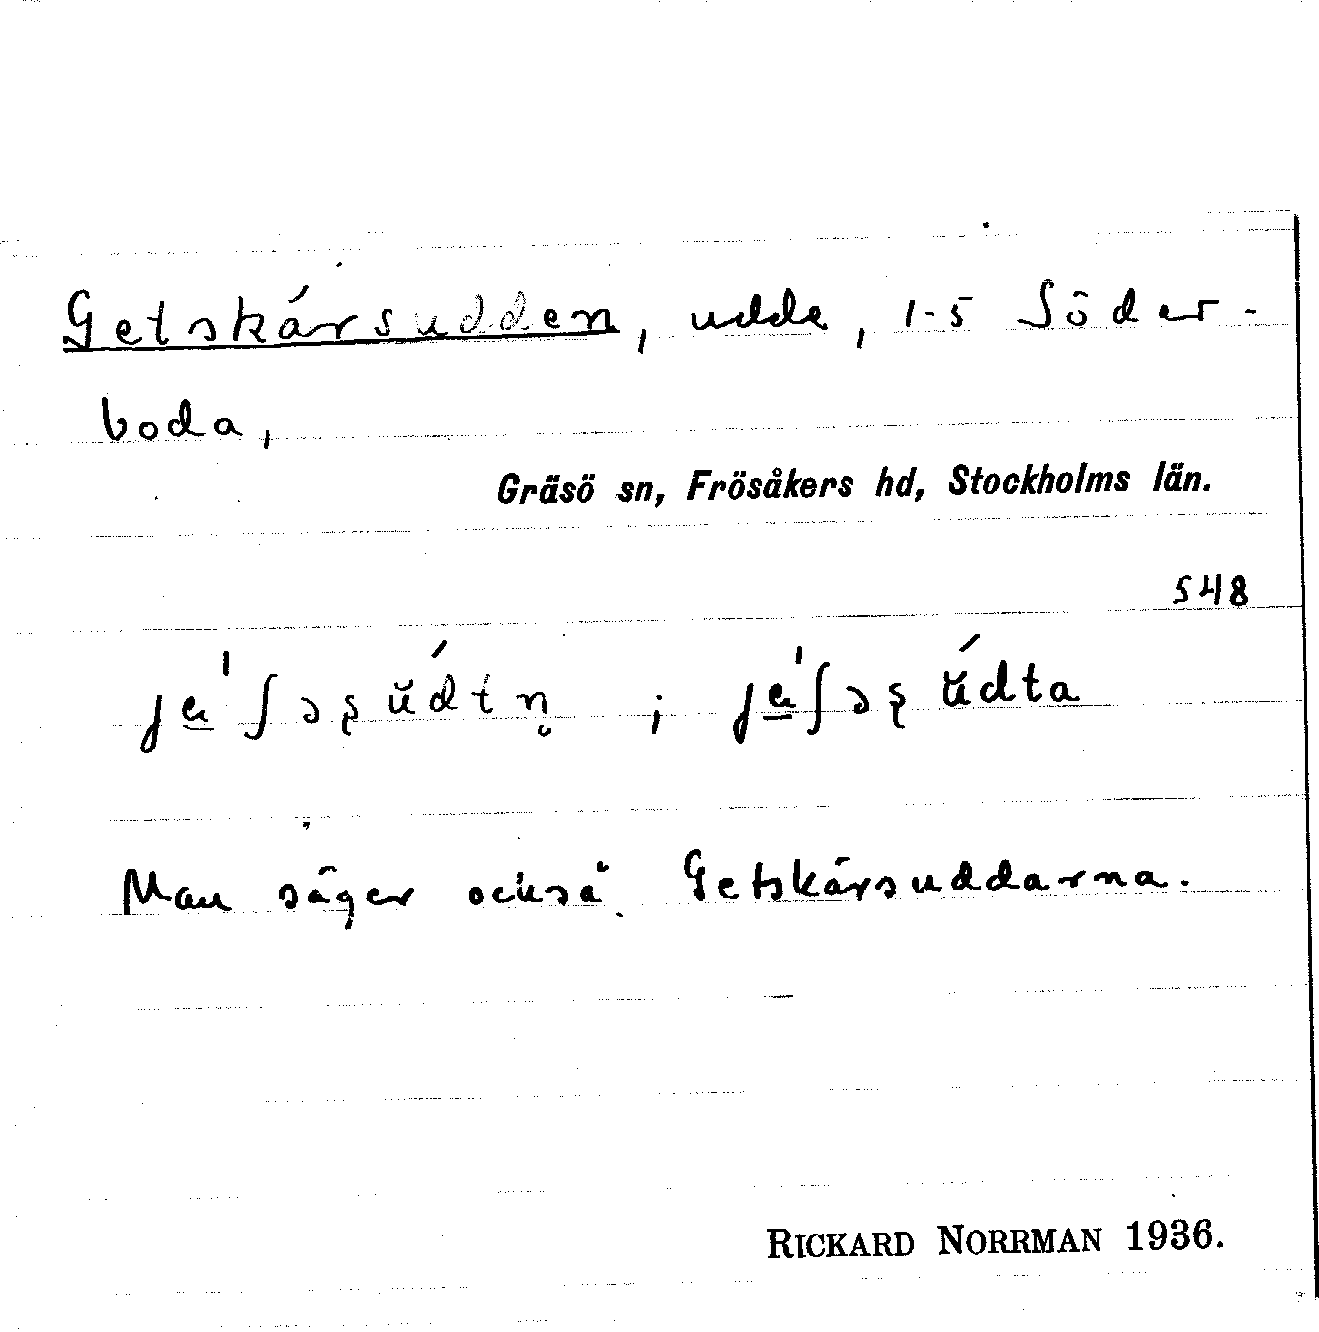 Getskärsudden, udde, 1-5 Söder-
boda,
Gräsö sn, Frösåkers hd, Stockholms län.
548
Man säger också Getskärsuddarna.
RICKARD NORRMAN 1936.